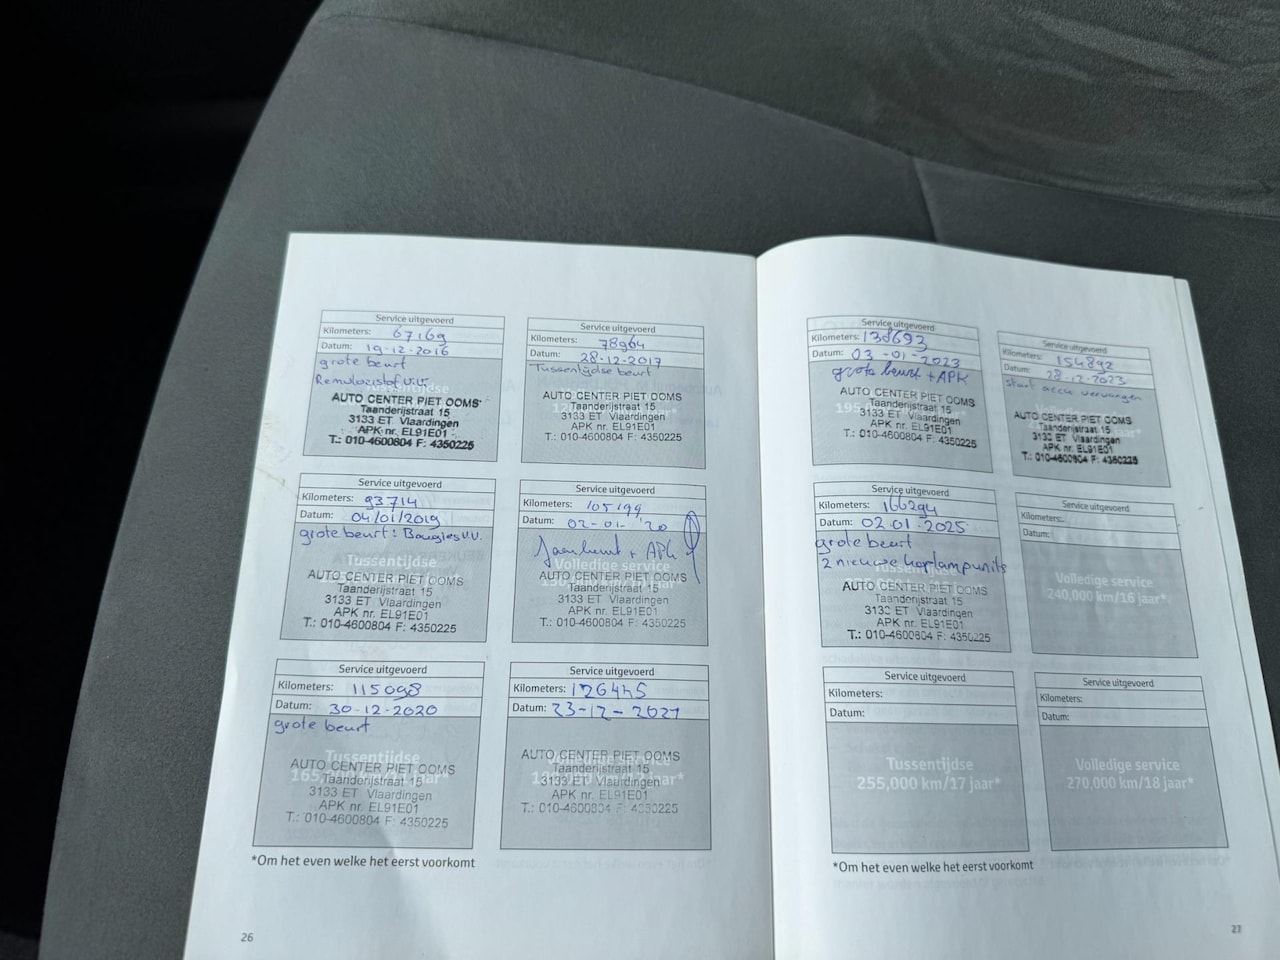 Service uitgevoerd
Kilometers: 67169
Datum: 19-12-2016
grote beurt
Remvloeistof v.v.
AUTO CENTER PIET OOMS
Taanderijstraat 15
3133 ET Vlaardingen
APK nr. EL91E01
T.: 010-4600804 F: 4350225
Service uitgevoerd
Kilometers: 78964
Datum: 28-12-2017
Tussentijdse beurt
AUTO CENTER PIET OOMS
Taanderijstraat 15
3133 ET Vlaardingen
APK nr. EL91E01
T.: 010-4600804 F: 4350225
Service uitgevoerd
Kilometers: 93714
Datum: 04/01/2019
grote beurt: Bougies v.v.
Tussentijdse
AUTO CENTER PIET OOMS
Taanderijstraat 15
3133 ET Vlaardingen
APK nr. EL91E01
T.: 010-4600804 F: 4350225
Service uitgevoerd
Kilometers: 105199
Datum: 02-01-'20
Jaarbeurt + APK
Volledige service
AUTO CENTER PIET OOMS
Taanderijstraat 15
3133 ET Vlaardingen
APK nr. EL91E01
T.: 010-4600804 F: 4350225
Service uitgevoerd
Kilometers: 115098
Datum: 30-12-2020
grote beurt
Tussentijdse
AUTO CENTER PIET OOMS
Taanderijstraat 15
3133 ET Vlaardingen
APK nr. EL91E01
T.: 010-4600804 F: 4350225
Service uitgevoerd
Kilometers: 126445
Datum: 23-12-2021
AUTO CENTER PIET OOMS
Taanderijstraat 15
3133 ET Vlaardingen
APK nr. EL91E01
T.: 010-4600804 F: 4350225
*Om het even welke het eerst voorkomt
26
Service uitgevoerd
Kilometers: 138693
Datum: 03-01-2023
grote beurt + APK
AUTO CENTER PIET OOMS
Taanderijstraat 15
3133 ET Vlaardingen
APK nr. EL91E01
T.: 010-4600804 F: 4350225
Service uitgevoerd
Kilometers: 154892
Datum: 28-12-2023
start accu vervangen
AUTO CENTER PIET OOMS
Taanderijstraat 15
3133 ET Vlaardingen
APK nr. EL91E01
T.: 010-4600804 F: 4350225
Service uitgevoerd
Kilometers: 166294
Datum: 02.01.2025
grote beurt
2 nieuwe koplampunits
AUTO CENTER PIET OOMS
Taanderijstraat 15
3133 ET Vlaardingen
APK nr. EL91E01
T.: 010-4600804 F: 4350225
Service uitgevoerd
Kilometers:
Datum:
Volledige service
240,000 km/16 jaar*
Service uitgevoerd
Kilometers:
Datum:
Tussentijdse
255,000 km/17 jaar*
Service uitgevoerd
Kilometers:
Datum:
Volledige service
270,000 km/18 jaar*
*Om het even welke het eerst voorkomt
27